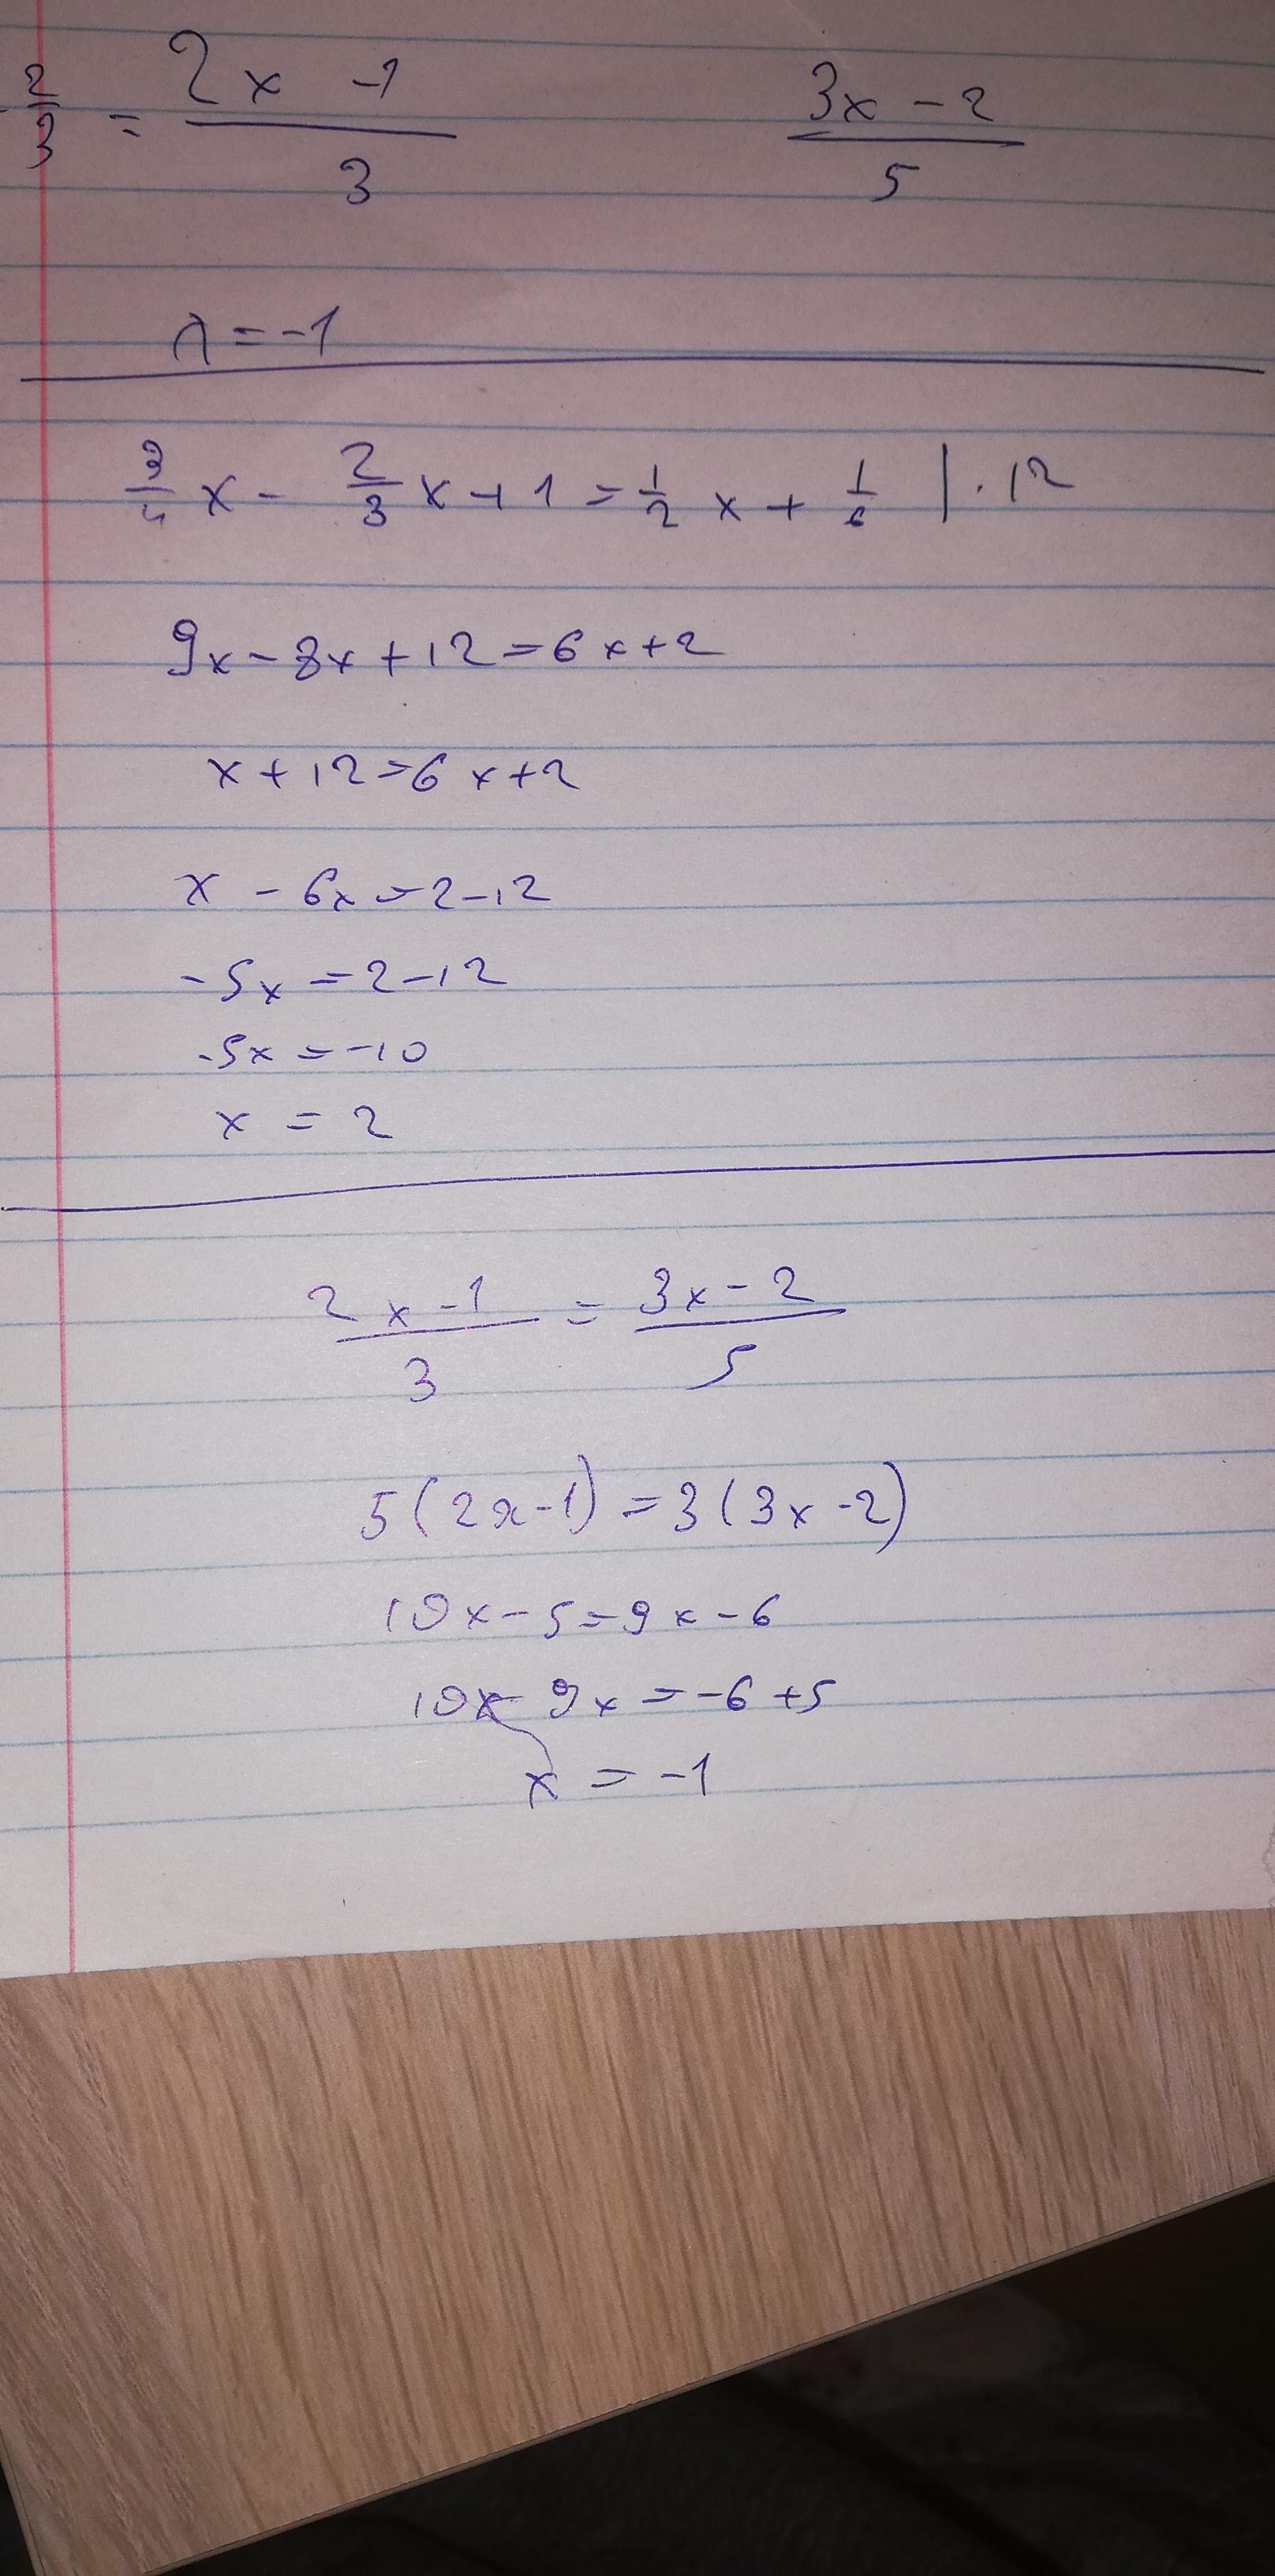 2/3 = (2x - 1)/3    (3x - 2)/5
x = -1
3/4 x - 2/3 x + 1 = 1/2 x + 1/6 | · 12
9x - 8x + 12 = 6x + 2
x + 12 = 6x + 2
x - 6x = 2 - 12
-5x = 2 - 12
-5x = -10
x = 2
(2x - 1)/3 = (3x - 2)/5
5(2x - 1) = 3(3x - 2)
10x - 5 = 9x - 6
10x - 9x = -6 + 5
x = -1